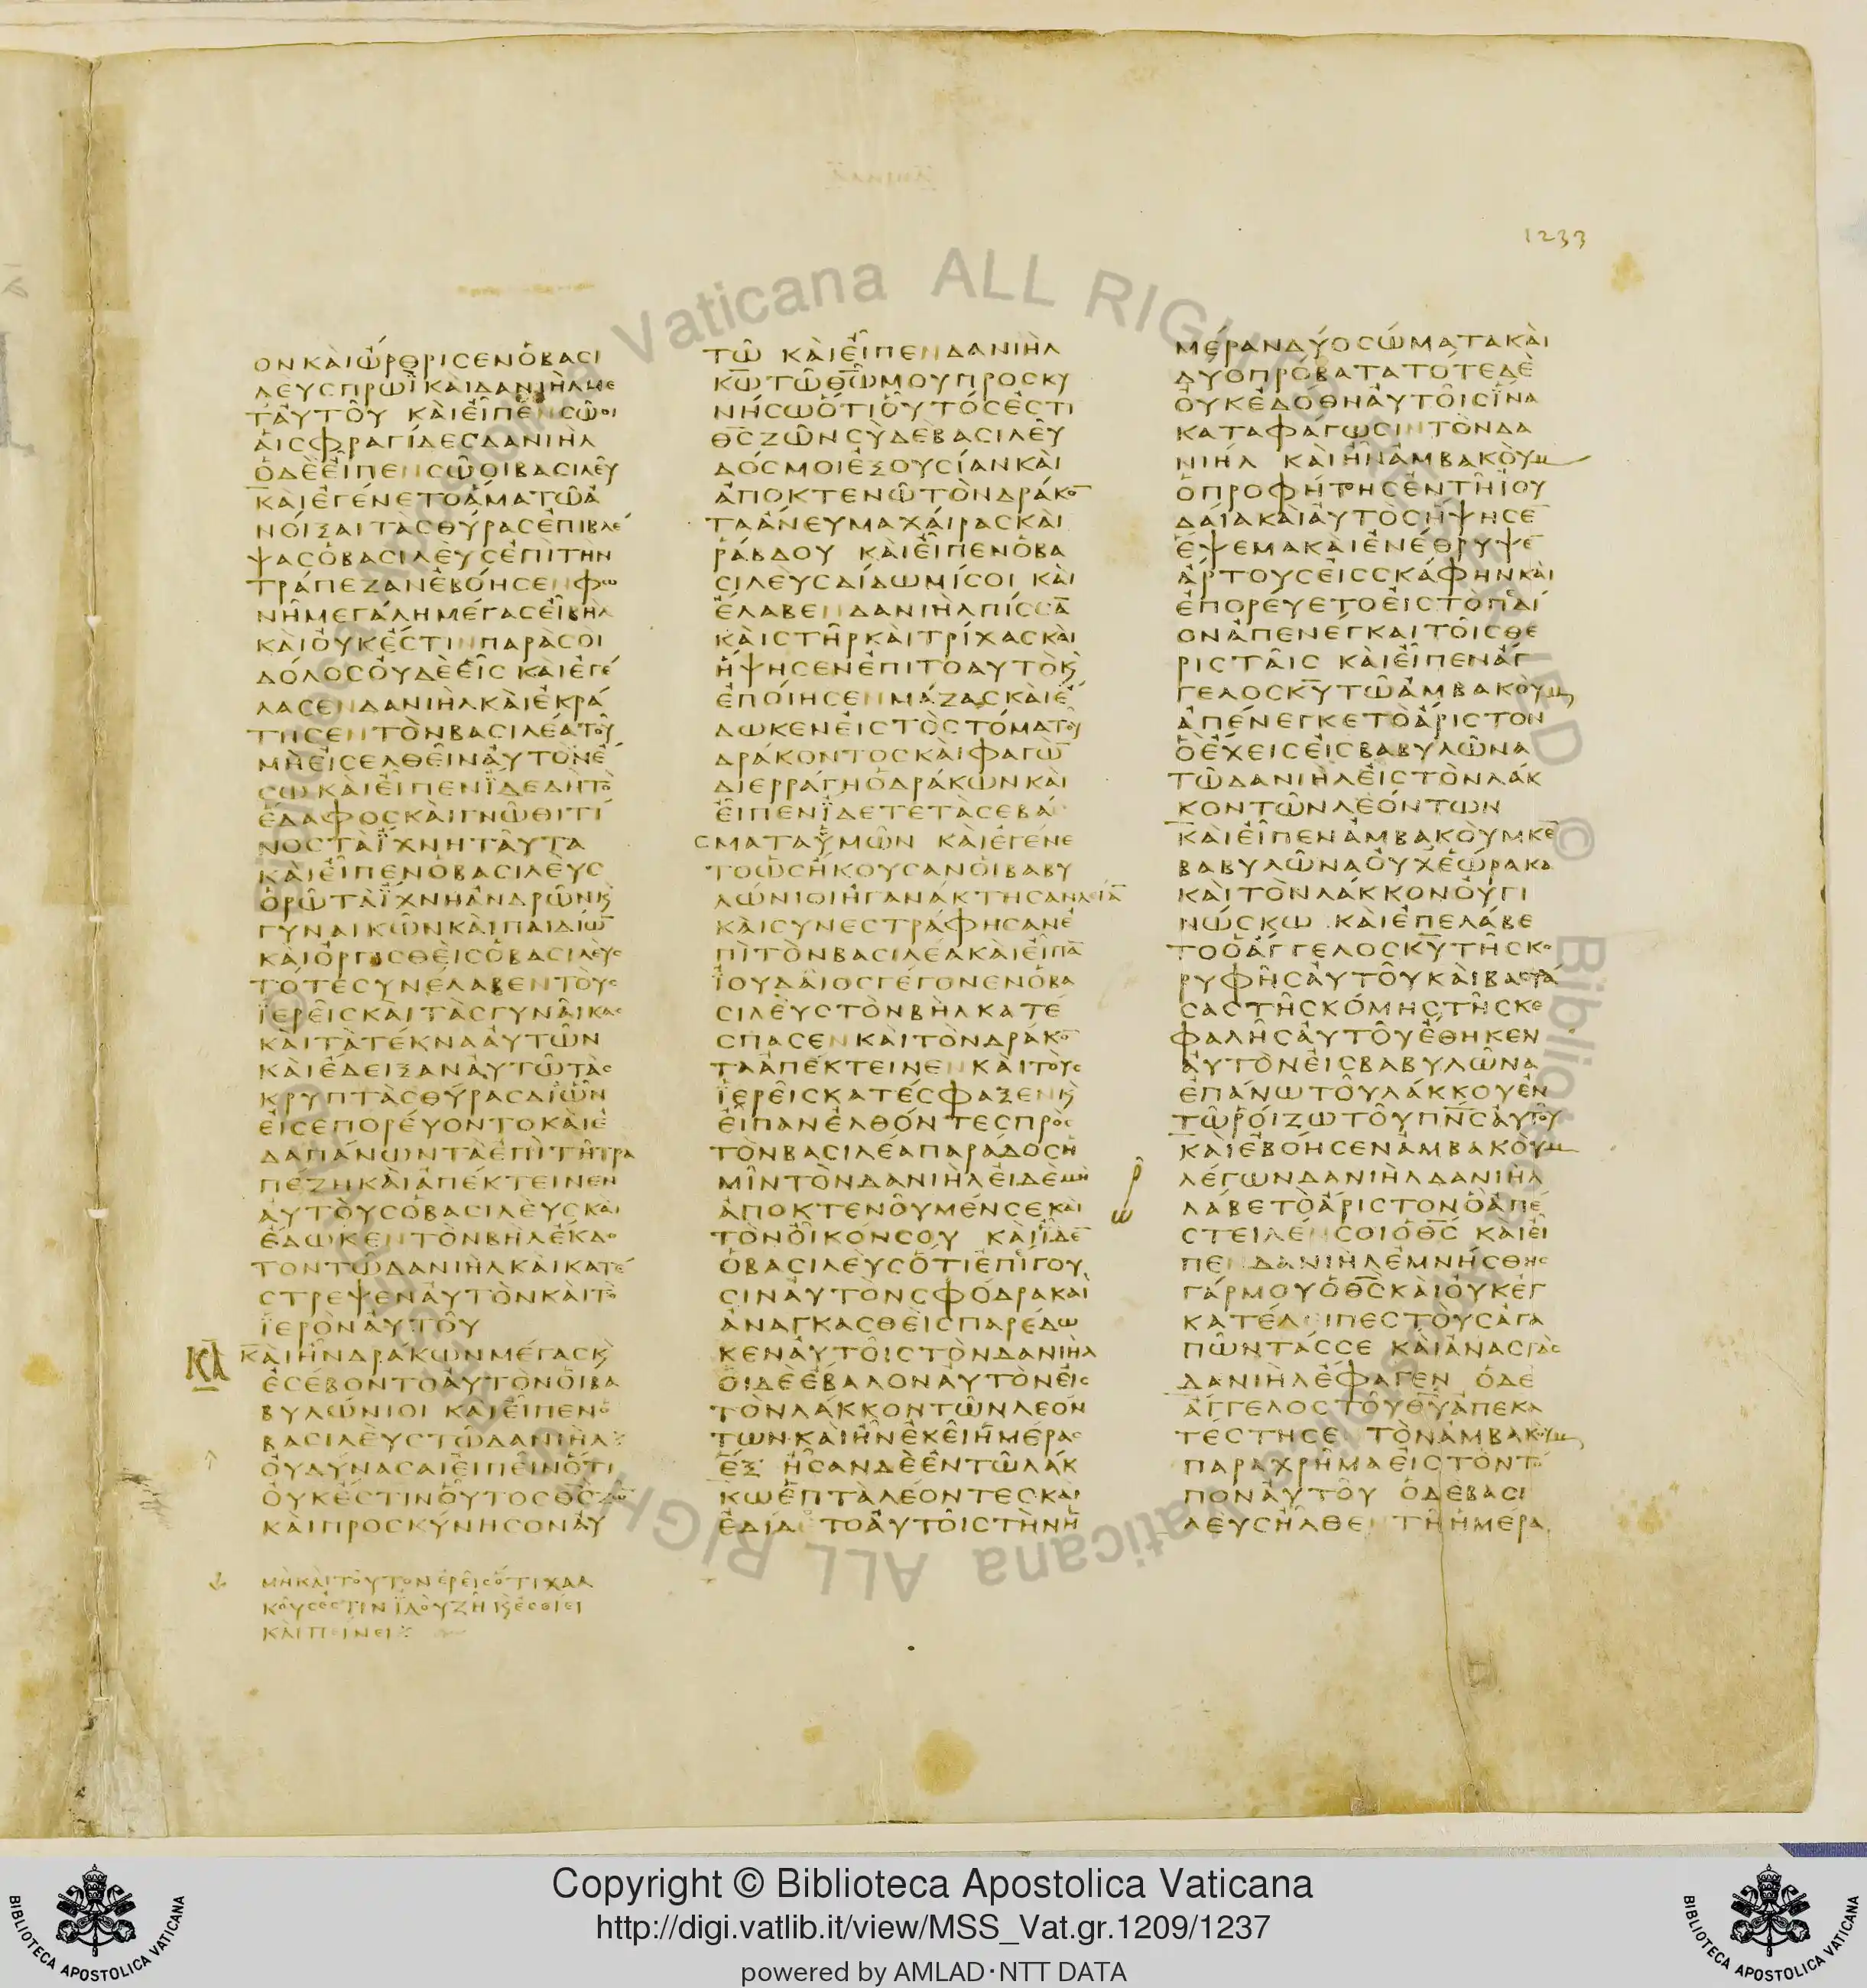 1233
ΟΝ ΚΑΙ ΩΡΘΡΙΣΕΝ Ο ΒΑΣΙ
ΛΕΥΣ ΠΡΩΙ ΚΑΙ ΔΑΝΙΗΛ ΜΕ
Τ ΑΥΤΟΥ ΚΑΙ ΕΙΠΕΝ ΣΩΟΙ
ΑΙ ΣΦΡΑΓΙΔΕΣ ΔΑΝΙΗΛ
Ο ΔΕ ΕΙΠΕΝ ΣΩΟΙ ΒΑΣΙΛΕΥ
ΚΑΙ ΕΓΕΝΕΤΟ ΑΜΑ ΤΩ Α
ΝΟΙΞΑΙ ΤΑΣ ΘΥΡΑΣ ΕΠΙΒΛΕ
ΨΑΣ Ο ΒΑΣΙΛΕΥΣ ΕΠΙ ΤΗΝ
ΤΡΑΠΕΖΑΝ ΕΒΟΗΣΕΝ ΦΩ
ΝΗ ΜΕΓΑΛΗ ΜΕΓΑΣ ΕΙ ΒΗΛ
ΚΑΙ ΟΥΚ ΕΣΤΙΝ ΠΑΡΑ ΣΟΙ
ΔΟΛΟΣ ΟΥΔΕ ΕΙΣ ΚΑΙ ΕΓΕ
ΛΑΣΕΝ ΔΑΝΙΗΛ ΚΑΙ ΕΚΡΑ
ΤΗΣΕΝ ΤΟΝ ΒΑΣΙΛΕΑ ΤΟΥ
ΜΗ ΕΙΣΕΛΘΕΙΝ ΑΥΤΟΝ Ε
ΣΩ ΚΑΙ ΕΙΠΕΝ ΙΔΕ ΔΗ ΤΟ
ΕΔΑΦΟΣ ΚΑΙ ΓΝΩΘΙ ΤΙ
ΝΟΣ ΤΑ ΙΧΝΗ ΤΑΥΤΑ
ΚΑΙ ΕΙΠΕΝ Ο ΒΑΣΙΛΕΥΣ
ΟΡΩ ΤΑ ΙΧΝΗ ΑΝΔΡΩΝ Ϗ
ΓΥΝΑΙΚΩΝ ΚΑΙ ΠΑΙΔΙΩ̅
ΚΑΙ ΟΡΓΙΣΘΕΙΣ Ο ΒΑΣΙΛΕΥΣ
ΤΟΤΕ ΣΥΝΕΛΑΒΕΝ ΤΟΥΣ
ΙΕΡΕΙΣ ΚΑΙ ΤΑΣ ΓΥΝΑΙΚΑΣ
ΚΑΙ ΤΑ ΤΕΚΝΑ ΑΥΤΩΝ
ΚΑΙ ΕΔΕΙΞΑΝ ΑΥΤΩ ΤΑΣ
ΚΡΥΠΤΑΣ ΘΥΡΑΣ ΔΙ ΩΝ
ΕΙΣΕΠΟΡΕΥΟΝΤΟ ΚΑΙ Ε
ΔΑΠΑΝΩΝ ΤΑ ΕΠΙ ΤΗ ΤΡΑ
ΠΕΖΗ ΚΑΙ ΑΠΕΚΤΕΙΝΕΝ
ΑΥΤΟΥΣ Ο ΒΑΣΙΛΕΥΣ ΚΑΙ
ΕΔΩΚΕΝ ΤΟΝ ΒΗΛ ΕΚΔΟ
ΤΟΝ ΤΩ ΔΑΝΙΗΛ ΚΑΙ ΚΑΤΕ
ΣΤΡΕΨΕΝ ΑΥΤΟΝ ΚΑΙ ΤΟ
ΙΕΡΟΝ ΑΥΤΟΥ
ΚΑ ΚΑΙ ΗΝ ΔΡΑΚΩΝ ΜΕΓΑΣ Ϗ
ΕΣΕΒΟΝΤΟ ΑΥΤΟΝ ΟΙ ΒΑ
ΒΥΛΩΝΙΟΙ ΚΑΙ ΕΙΠΕΝ Ο
ΒΑΣΙΛΕΥΣ ΤΩ ΔΑΝΙΗΛ
ΟΥ ΔΥΝΑΣΑΙ ΕΙΠΕΙΝ ΟΤΙ
ΟΥΚ ΕΣΤΙΝ ΟΥΤΟΣ ΘΣ ΖΩ̅
ΚΑΙ ΠΡΟΣΚΥΝΗΣΟΝ ΑΥ
ΜΗ ΚΑΙ ΤΟΥΤΟΝ ΕΡΕΙΣ ΟΤΙ ΧΑΛ
ΚΟΥΣ ΕΣΤΙΝ ΙΔΟΥ ΖΗ Ϗ ΕΣΘΙΕΙ
ΚΑΙ ΠΙΝΕΙ
ΤΩ ΚΑΙ ΕΙΠΕΝ ΔΑΝΙΗΛ
ΚΩ ΤΩ ΘΩ ΜΟΥ ΠΡΟΣΚΥ
ΝΗΣΩ ΟΤΙ ΟΥΤΟΣ ΕΣΤΙ
ΘΣ ΖΩΝ ΣΥ ΔΕ ΒΑΣΙΛΕΥ
ΔΟΣ ΜΟΙ ΕΞΟΥΣΙΑΝ ΚΑΙ
ΑΠΟΚΤΕΝΩ ΤΟΝ ΔΡΑΚΟ̅
ΤΑ ΑΝΕΥ ΜΑΧΑΙΡΑΣ ΚΑΙ
ΡΑΒΔΟΥ ΚΑΙ ΕΙΠΕΝ Ο ΒΑ
ΣΙΛΕΥΣ ΔΙΔΩΜΙ ΣΟΙ ΚΑΙ
ΕΛΑΒΕΝ ΔΑΝΙΗΛ ΠΙΣΣΑ̅
ΚΑΙ ΣΤΗΡ ΚΑΙ ΤΡΙΧΑΣ ΚΑΙ
ΗΨΗΣΕΝ ΕΠΙ ΤΟ ΑΥΤΟ Ϗ
ΕΠΟΙΗΣΕΝ ΜΑΖΑΣ ΚΑΙ Ε
ΔΩΚΕΝ ΕΙΣ ΤΟ ΣΤΟΜΑ ΤΟΥ
ΔΡΑΚΟΝΤΟΣ ΚΑΙ ΦΑΓΩ̅
ΔΙΕΡΡΑΓΗ Ο ΔΡΑΚΩΝ ΚΑΙ
ΕΙΠΕΝ ΙΔΕΤΕ ΤΑ ΣΕΒΑ
ΣΜΑΤΑ ΥΜΩΝ ΚΑΙ ΕΓΕΝΕ
ΤΟ ΩΣ ΗΚΟΥΣΑΝ ΟΙ ΒΑΒΥ
ΛΩΝΙΟΙ ΗΓΑΝΑΚΤΗΣΑΝ ΛΙΑ̅
ΚΑΙ ΣΥΝΕΣΤΡΑΦΗΣΑΝ Ε
ΠΙ ΤΟΝ ΒΑΣΙΛΕΑ ΚΑΙ ΕΙΠΑ̅
ΙΟΥΔΑΙΟΣ ΓΕΓΟΝΕΝ Ο ΒΑ
ΣΙΛΕΥΣ ΤΟΝ ΒΗΛ ΚΑΤΕ
ΣΠΑΣΕΝ ΚΑΙ ΤΟΝ ΔΡΑΚΟ̅
ΤΑ ΑΠΕΚΤΕΙΝΕΝ ΚΑΙ ΤΟΥΣ
ΙΕΡΕΙΣ ΚΑΤΕΣΦΑΞΕΝ Ϗ
ΕΙΠΑΝ ΕΛΘΟΝΤΕΣ ΠΡΟΣ
ΤΟΝ ΒΑΣΙΛΕΑ ΠΑΡΑΔΟΣ Η
ΜΙΝ ΤΟΝ ΔΑΝΙΗΛ ΕΙ ΔΕ ΜΗ
ΑΠΟΚΤΕΝΟΥΜΕΝ ΣΕ ΚΑΙ
ΤΟΝ ΟΙΚΟΝ ΣΟΥ ΚΑΙ ΙΔΕ̅
Ο ΒΑΣΙΛΕΥΣ ΟΤΙ ΕΠΙΓΟΥ
ΣΙΝ ΑΥΤΟΝ ΣΦΟΔΡΑ ΚΑΙ
ΑΝΑΓΚΑΣΘΕΙΣ ΠΑΡΕΔΩ
ΚΕΝ ΑΥΤΟΙΣ ΤΟΝ ΔΑΝΙΗΛ
ΟΙ ΔΕ ΕΒΑΛΟΝ ΑΥΤΟΝ ΕΙΣ
ΤΟΝ ΛΑΚΚΟΝ ΤΩΝ ΛΕΟΝ
ΤΩΝ ΚΑΙ ΗΝ ΕΚΕΙ ΗΜΕΡΑΣ
ΕΞ ΗΣΑΝ ΔΕ ΕΝ ΤΩ ΛΑΚ
ΚΩ ΕΠΤΑ ΛΕΟΝΤΕΣ ΚΑΙ
ΕΔΙΔΟΤΟ ΑΥΤΟΙΣ ΤΗΝ Η
ΜΕΡΑΝ ΔΥΟ ΣΩΜΑΤΑ ΚΑΙ
ΔΥΟ ΠΡΟΒΑΤΑ ΤΟΤΕ ΔΕ
ΟΥΚ ΕΔΟΘΗ ΑΥΤΟΙΣ ΙΝΑ
ΚΑΤΑΦΑΓΩΣΙΝ ΤΟΝ ΔΑ
ΝΙΗΛ ΚΑΙ ΗΝ ΑΜΒΑΚΟΥΜ
Ο ΠΡΟΦΗΤΗΣ ΕΝ ΤΗ ΙΟΥ
ΔΑΙΑ ΚΑΙ ΑΥΤΟΣ ΗΨΗΣΕ̅
ΕΨΕΜΑ ΚΑΙ ΕΝΕΘΡΥΨΕ̅
ΑΡΤΟΥΣ ΕΙΣ ΣΚΑΦΗΝ ΚΑΙ
ΕΠΟΡΕΥΕΤΟ ΕΙΣ ΤΟ ΠΑΙΔΙ
ΟΝ ΑΠΕΝΕΓΚΑΙ ΤΟΙΣ ΘΕ
ΡΙΣΤΑΙΣ ΚΑΙ ΕΙΠΕΝ ΑΓ
ΓΕΛΟΣ ΚΥ ΤΩ ΑΜΒΑΚΟΥΜ
ΑΠΕΝΕΓΚΕ ΤΟ ΑΡΙΣΤΟΝ
Ο ΕΧΕΙΣ ΕΙΣ ΒΑΒΥΛΩΝΑ
ΤΩ ΔΑΝΙΗΛ ΕΙΣ ΤΟΝ ΛΑΚ
ΚΟΝ ΤΩΝ ΛΕΟΝΤΩΝ
ΚΑΙ ΕΙΠΕΝ ΑΜΒΑΚΟΥΜ ΚΕ
ΒΑΒΥΛΩΝΑ ΟΥΧ ΕΩΡΑΚΑ
ΚΑΙ ΤΟΝ ΛΑΚΚΟΝ ΟΥ ΓΙ
ΝΩΣΚΩ ΚΑΙ ΕΠΕΛΑΒΕ
ΤΟ Ο ΑΓΓΕΛΟΣ ΚΥ ΤΗΣ ΚΟ
ΡΥΦΗΣ ΑΥΤΟΥ ΚΑΙ ΒΑΣΤΑ
ΣΑΣ ΤΗΣ ΚΟΜΗΣ ΤΗΣ ΚΕ
ΦΑΛΗΣ ΑΥΤΟΥ ΕΘΗΚΕΝ
ΑΥΤΟΝ ΕΙΣ ΒΑΒΥΛΩΝΑ
ΕΠΑΝΩ ΤΟΥ ΛΑΚΚΟΥ ΕΝ
ΤΩ ΡΟΙΖΩ ΤΟΥ ΠΝΣ ΑΥΤΟΥ
ΚΑΙ ΕΒΟΗΣΕΝ ΑΜΒΑΚΟΥΜ
ΛΕΓΩΝ ΔΑΝΙΗΛ ΔΑΝΙΗΛ
ΛΑΒΕ ΤΟ ΑΡΙΣΤΟΝ Ο ΑΠΕ
ΣΤΕΙΛΕΝ ΣΟΙ Ο ΘΣ ΚΑΙ ΕΙ
ΠΕΝ ΔΑΝΙΗΛ ΕΜΝΗΣΘΗΣ
ΓΑΡ ΜΟΥ Ο ΘΣ ΚΑΙ ΟΥΚ ΕΓ
ΚΑΤΕΛΙΠΕΣ ΤΟΥΣ ΑΓΑ
ΠΩΝΤΑΣ ΣΕ ΚΑΙ ΑΝΑΣΤΑΣ
ΔΑΝΙΗΛ ΕΦΑΓΕΝ Ο ΔΕ
ΑΓΓΕΛΟΣ ΤΟΥ ΘΥ ΑΠΕΚΑ
ΤΕΣΤΗΣΕΝ ΤΟΝ ΑΜΒΑΚΟΥΜ
ΠΑΡΑΧΡΗΜΑ ΕΙΣ ΤΟΝ ΤΟ
ΠΟΝ ΑΥΤΟΥ Ο ΔΕ ΒΑΣΙ
ΛΕΥΣ ΗΛΘΕΝ ΤΗ ΗΜΕΡΑ
Vaticana ALL RIGHTS RESERVED © Biblioteca Apostolica Vaticana ALL RIGHTS
BIBLIOTECA APOSTOLICA VATICANA
Copyright © Biblioteca Apostolica Vaticana
http://digi.vatlib.it/view/MSS_Vat.gr.1209/1237
powered by AMLAD·NTT DATA
BIBLIOTECA APOSTOLICA VATICANA